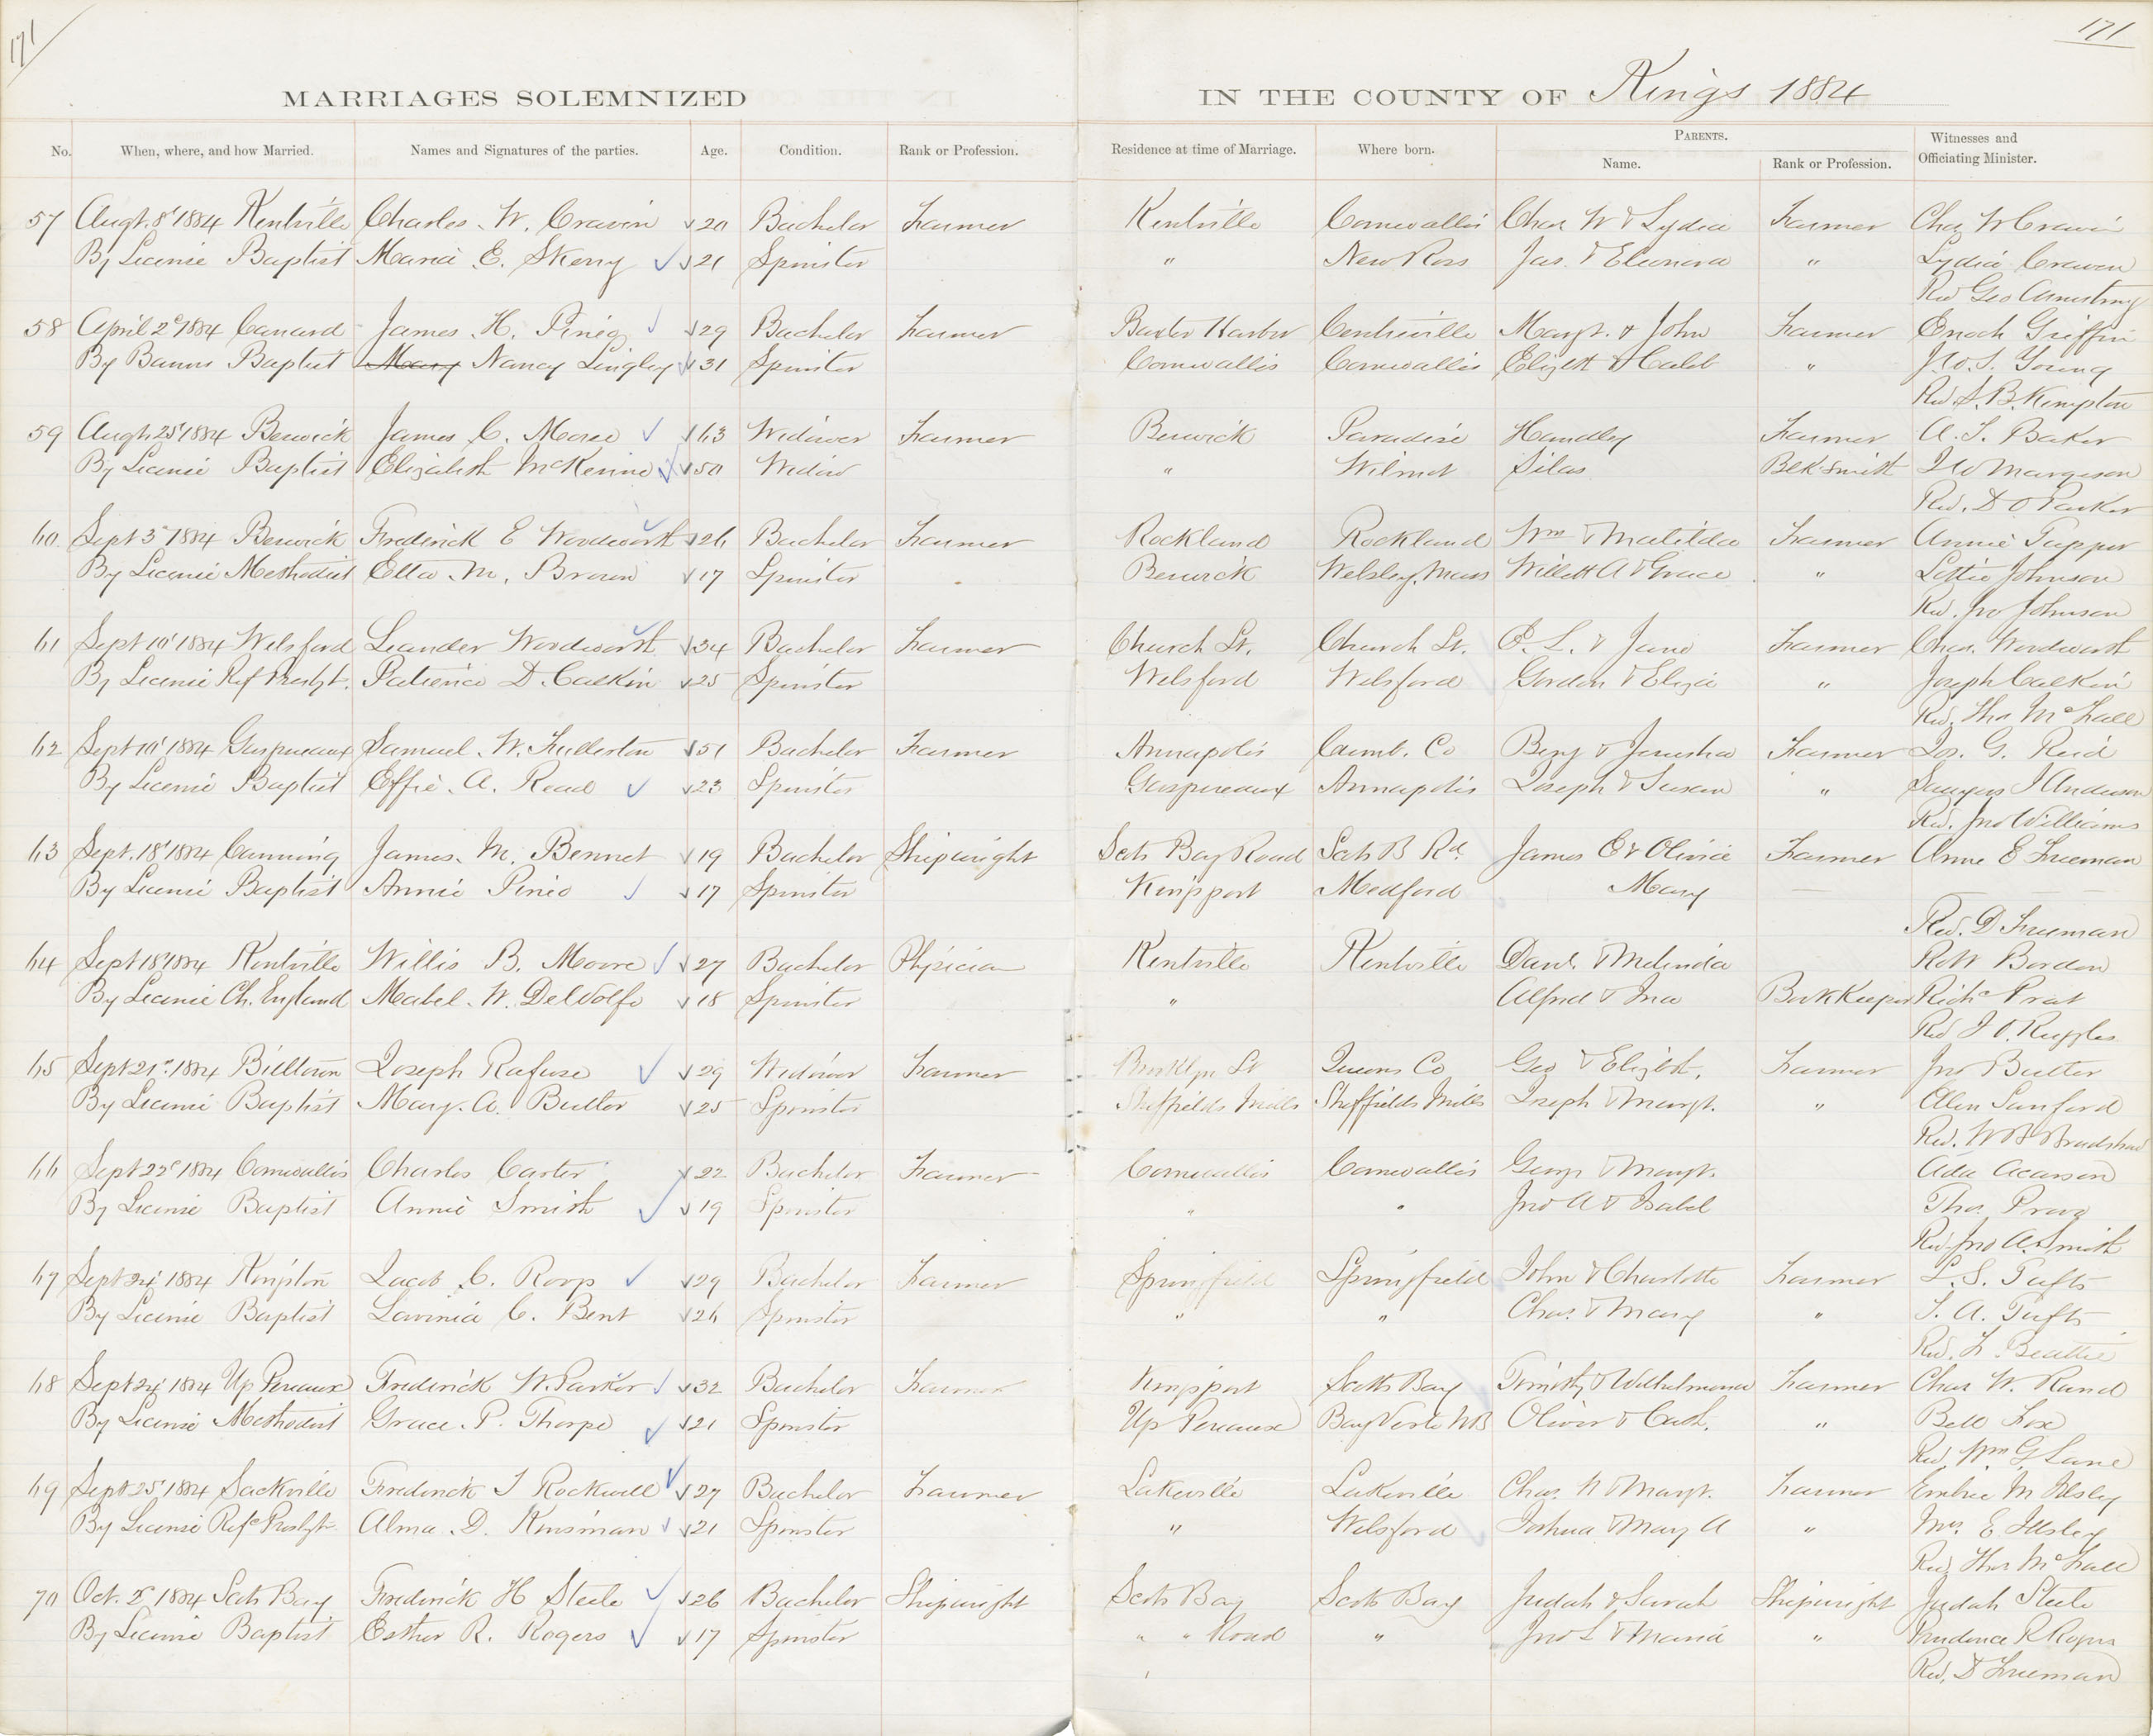 171
171
MARRIAGES SOLEMNIZED IN THE COUNTY OF Kings 1884
No. When, where, and how Married. Names and Signatures of the parties. Age. Condition. Rank or Profession. Residence at time of Marriage. Where born. PARENTS. Name. Rank or Profession. Witnesses and Officiating Minister.
57 Augt. 8' 1884 Kentville Charles W. Cravin 20 Bachelor Farmer Kentville Cornwallis Chas W & Lydia Farmer Chas W Cravin
By License Baptist Maria E. Skerry 21 Spinster " New Ross Jas. & Eleonora " Lydia Craven
Rev Geo Armstrong
58 April 2d 1884 Canard James H. Pineo 29 Bachelor Farmer Baxter Harbor Centreville Margt. & John Farmer Enoch Griffin
By Banns Baptist Mary Nancy Lingley 31 Spinster Cornwallis Cornwallis Elizbth & Caleb " J.W.S. Young
Rev S. B. Kempton
59 Augt 25' 1884 Berwick James C. Morse 63 Widower Farmer Berwick Paradise Handley Farmer A. S. Baker
By License Baptist Elizabeth McKenne 50 Widow " Wilmot Silas Blksmith Margeson
Rev. D O Parker
60 Sept 3d 1884 Berwick Frederick E Woodworth 26 Bachelor Farmer Rockland Rockland Wm & Matilda Farmer Annie Tupper
By License Methodist Ella M. Brown 17 Spinster Berwick Welsley, Mass Willett A & Grace " Lottie Johnson
Rev. Jno Johnson
61 Sept 10' 1884 Welsford Leander Woodworth 34 Bachelor Farmer Church St. Church St. P. L. & Jane Farmer Chas. Woodworth
By License Ref Presbyt. Patience D. Calkin 25 Spinster Welsford Welsford Gordon & Eliza " Joseph Calkin
Rev. Thos McFall
62 Sept 10' 1884 Gaspreaux Samuel W. Fullerton 51 Bachelor Farmer Annapolis Cumb. Co Benj & Jerusha Farmer Jos. G. Reid
By License Baptist Effie A. Read 23 Spinster Gaspreaux Annapolis Joseph & Susan " J Anderson
Rev. Jno Williams
63 Sept. 18' 1884 Canning James M. Bennet 19 Bachelor Shipwright Scots Bay Road Scots B Rd. James E & Olivia Farmer Anne E Freeman
By License Baptist Annie Pineo 17 Spinster Kingsport Medford Mary
Rev. D Freeman
64 Sept 18' 1884 Kentville Willis B. Moore 27 Bachelor Physician Kentville Kentville Danl. & Melinda Robt Bordon
By License Ch. England Mabel W. DeWolfe 18 Spinster " Alfred & Ina BookKeeper Richd Prat
Rev J O. Ruggles
65 Sept 21st 1884 Billtown Joseph Rafuse 29 Widower Farmer Brooklyn St Queens Co Geo & Elizbth. Farmer Jno Butler
By License Baptist Mary. A. Butler 25 Spinster Sheffields Mills Sheffields Mills Joseph & Margt. " Allen Sanford
Rev. W B Bradshaw
66 Sept 22d 1884 Cornwallis Charles Carter 22 Bachelor Farmer Cornwallis Cornwallis George & Margt. Ada Acarson
By License Baptist Annie Smith 19 Spinster " " Jno A & Isabel Thos.
Rev Jno A. Smith
67 Sept 24' 1884 Kingston Jacob C. Roop 29 Bachelor Farmer Springfield Springfield John & Charlotte Farmer L. S. Tufts
By License Baptist Lavinia C. Bent 26 Spinster " " Chas. & Mary " S. A. Tufts
Rev. F. Beattie
68 Sept 24' 1884 Up Pereaux Frederick W. Parker 32 Bachelor Farmer Kingsport Scotts Bay Timothy & Wilhelmena Farmer Chas W. Rand
By License Methodist Grace P. Thorpe 21 Spinster Up Pereaux Bay Verte NB Oliver & Cath. " Bell Fox
Rev. Wm G Lane
69 Sept 25' 1884 Sackville Frederick J Rockwell 27 Bachelor Farmer Lakeville Lakeville Chas. N & Margt. Farmer Embree M Illsley
By License Refd Presbyt Alma D. Kinsman 21 Spinster " Welsford Joshua & Mary A " Mrs. E Illsley
Rev Thos McFall
70 Oct. 2d 1884 Scots Bay Frederick H Steele 26 Bachelor Shipwright Scots Bay Scots Bay Judah & Sarah Shipwright Judah Steele
By License Baptist Esther R. Rogers 17 Spinster " " Road " Jno L & Maria " Prudence R Rogers
Rev. D Freeman